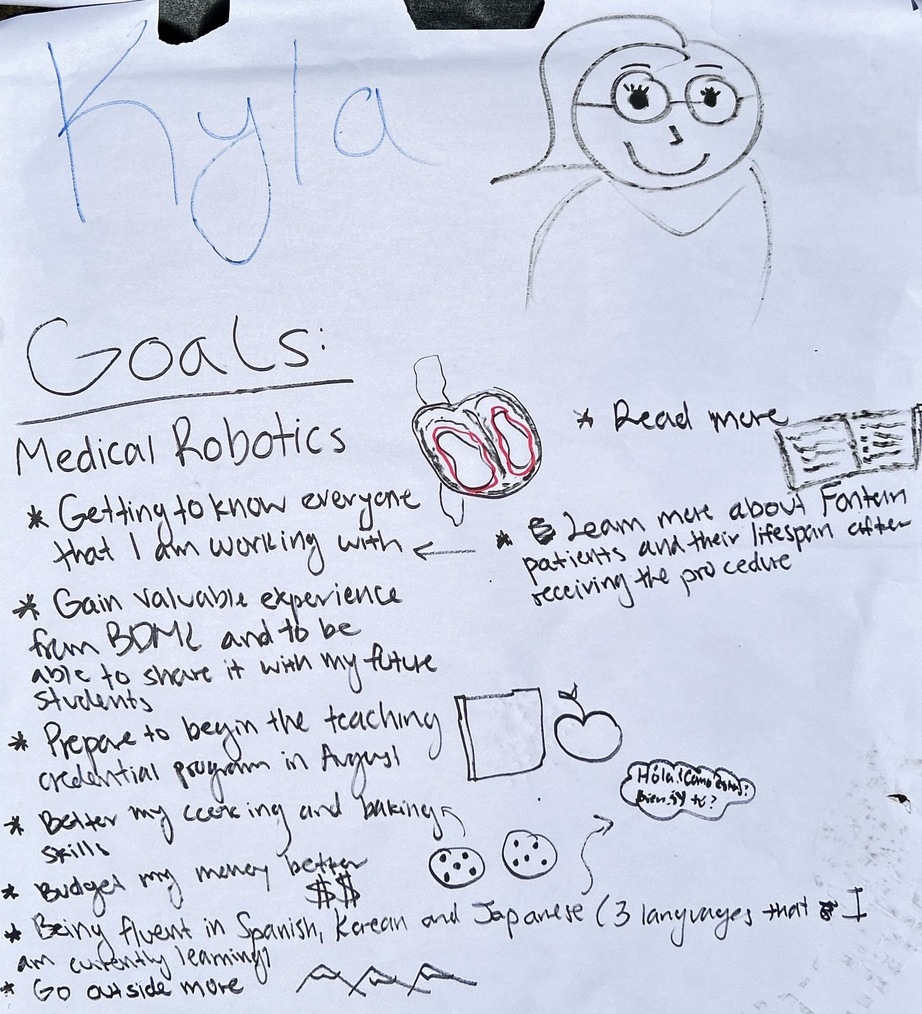 Kyla
Goals:
Medical Robotics
* Getting to know everyone
that I am working with
* Gain valuable experience
from BDML and to be
able to share it with my future
students
* Prepare to begin the teaching
credential program in August
* Better my cooking and baking
skills
* Budget my money better
$$
* Being fluent in Spanish, Korean and Japanese (3 languages that I
am currently learning)
* Go outside more
* Read more
* Learn more about Fontan
patients and their lifespan after
receiving the procedure
Hóla! Cómo estas?
Bien, ¿y tú?